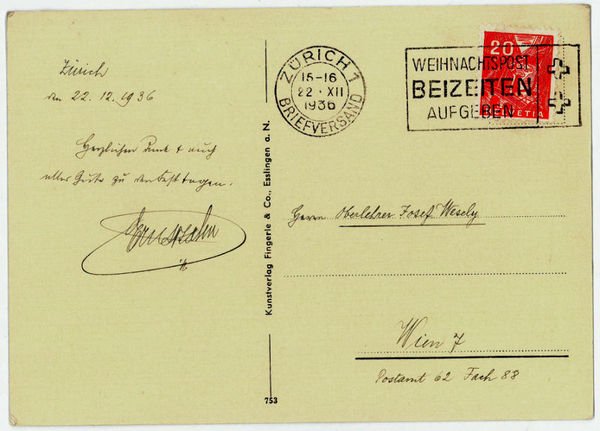 Zürich
den 22.12.1936
Herzlichen Dank & auch
alles Gute zu den Festtagen.
Ernst Zahn
Kunstverlag Fingerle & Co., Esslingen a. N.
753
ZÜRICH 1
15-16
22·XII
1936
BRIEFVERSAND
WEIHNACHTSPOST
BEIZEITEN
AUFGEBEN
20
HELVETIA
Herrn Oberlehrer Josef Wesely
Wien 7
Postamt 62 Fach 88